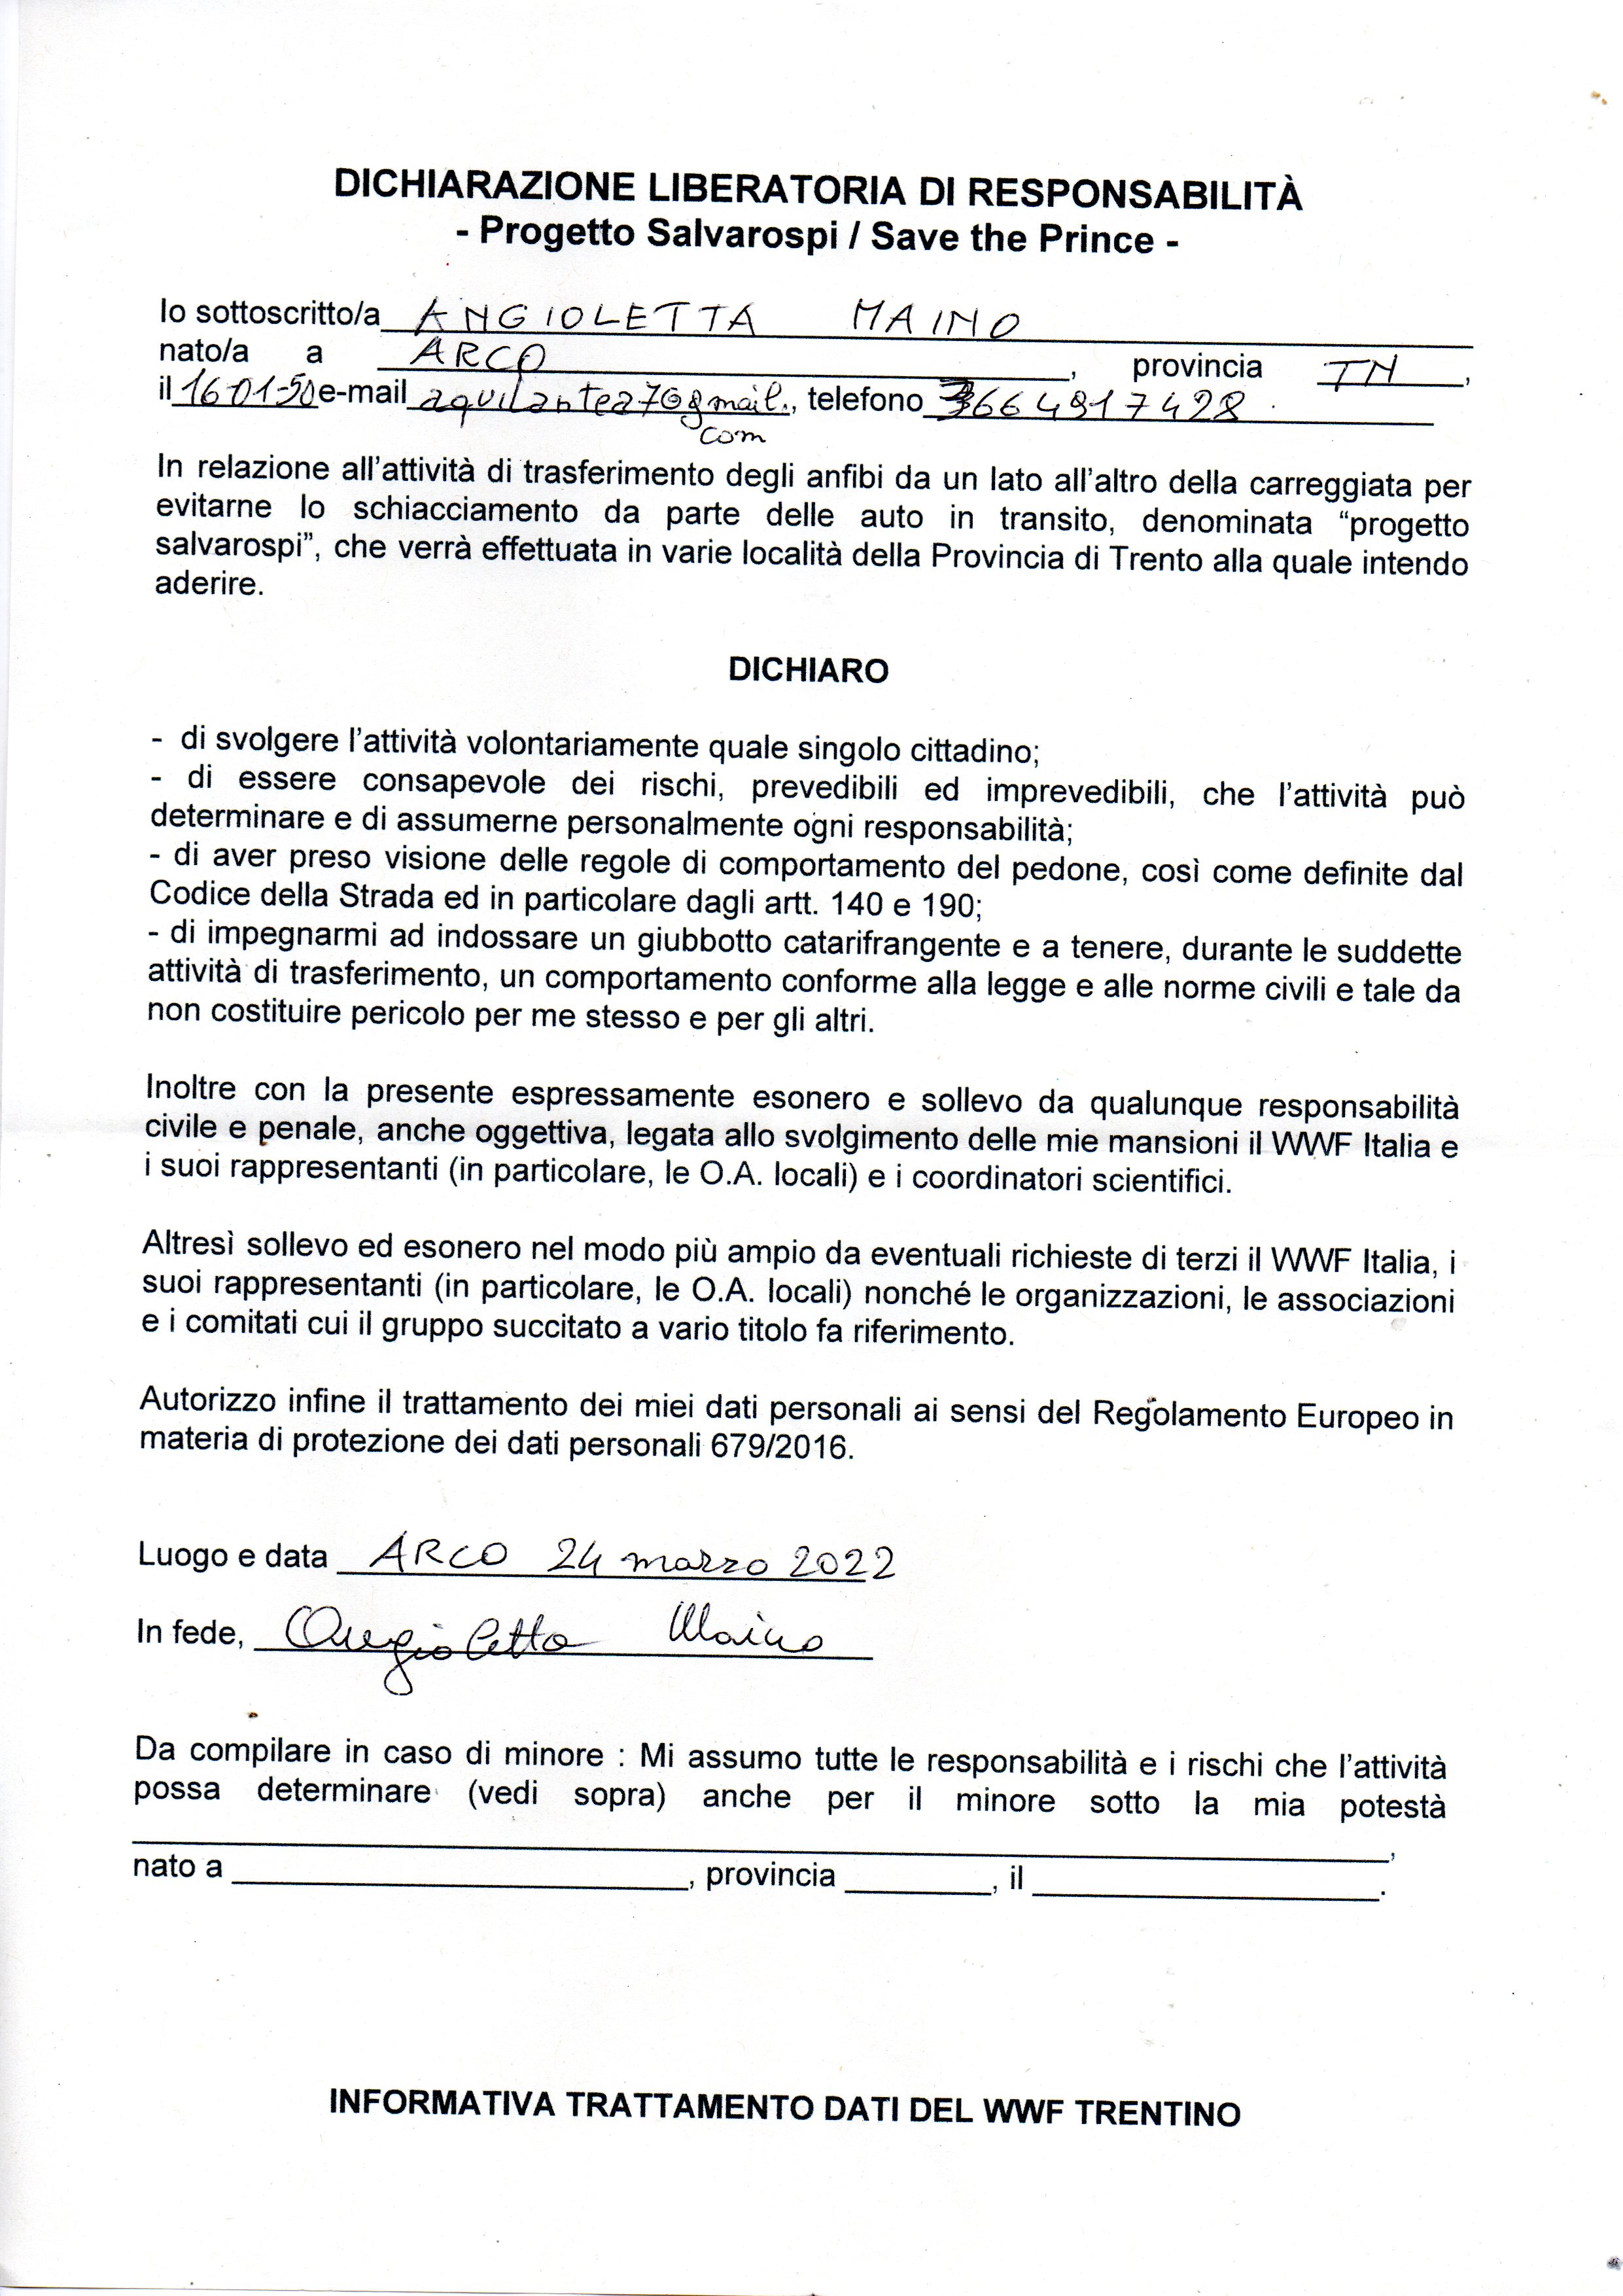 DICHIARAZIONE LIBERATORIA DI RESPONSABILITÀ
- Progetto Salvarospi / Save the Prince -
Io sottoscritto/a ANGIOLETTA MAINO
nato/a a ARCO, provincia TN,
il 16-01-50 e-mail aquilantea70@gmail., telefono 3664917428.
com
In relazione all’attività di trasferimento degli anfibi da un lato all’altro della carreggiata per
evitarne lo schiacciamento da parte delle auto in transito, denominata “progetto
salvarospi”, che verrà effettuata in varie località della Provincia di Trento alla quale intendo
aderire.
DICHIARO
- di svolgere l’attività volontariamente quale singolo cittadino;
- di essere consapevole dei rischi, prevedibili ed imprevedibili, che l’attività può
determinare e di assumerne personalmente ogni responsabilità;
- di aver preso visione delle regole di comportamento del pedone, così come definite dal
Codice della Strada ed in particolare dagli artt. 140 e 190;
- di impegnarmi ad indossare un giubbotto catarifrangente e a tenere, durante le suddette
attività di trasferimento, un comportamento conforme alla legge e alle norme civili e tale da
non costituire pericolo per me stesso e per gli altri.
Inoltre con la presente espressamente esonero e sollevo da qualunque responsabilità
civile e penale, anche oggettiva, legata allo svolgimento delle mie mansioni il WWF Italia e
i suoi rappresentanti (in particolare, le O.A. locali) e i coordinatori scientifici.
Altresì sollevo ed esonero nel modo più ampio da eventuali richieste di terzi il WWF Italia, i
suoi rappresentanti (in particolare, le O.A. locali) nonché le organizzazioni, le associazioni
e i comitati cui il gruppo succitato a vario titolo fa riferimento.
Autorizzo infine il trattamento dei miei dati personali ai sensi del Regolamento Europeo in
materia di protezione dei dati personali 679/2016.
Luogo e data ARCO 24 marzo 2022
In fede, Angioletta Maino
Da compilare in caso di minore : Mi assumo tutte le responsabilità e i rischi che l’attività
possa determinare (vedi sopra) anche per il minore sotto la mia potestà
,
nato a , provincia , il .
INFORMATIVA TRATTAMENTO DATI DEL WWF TRENTINO